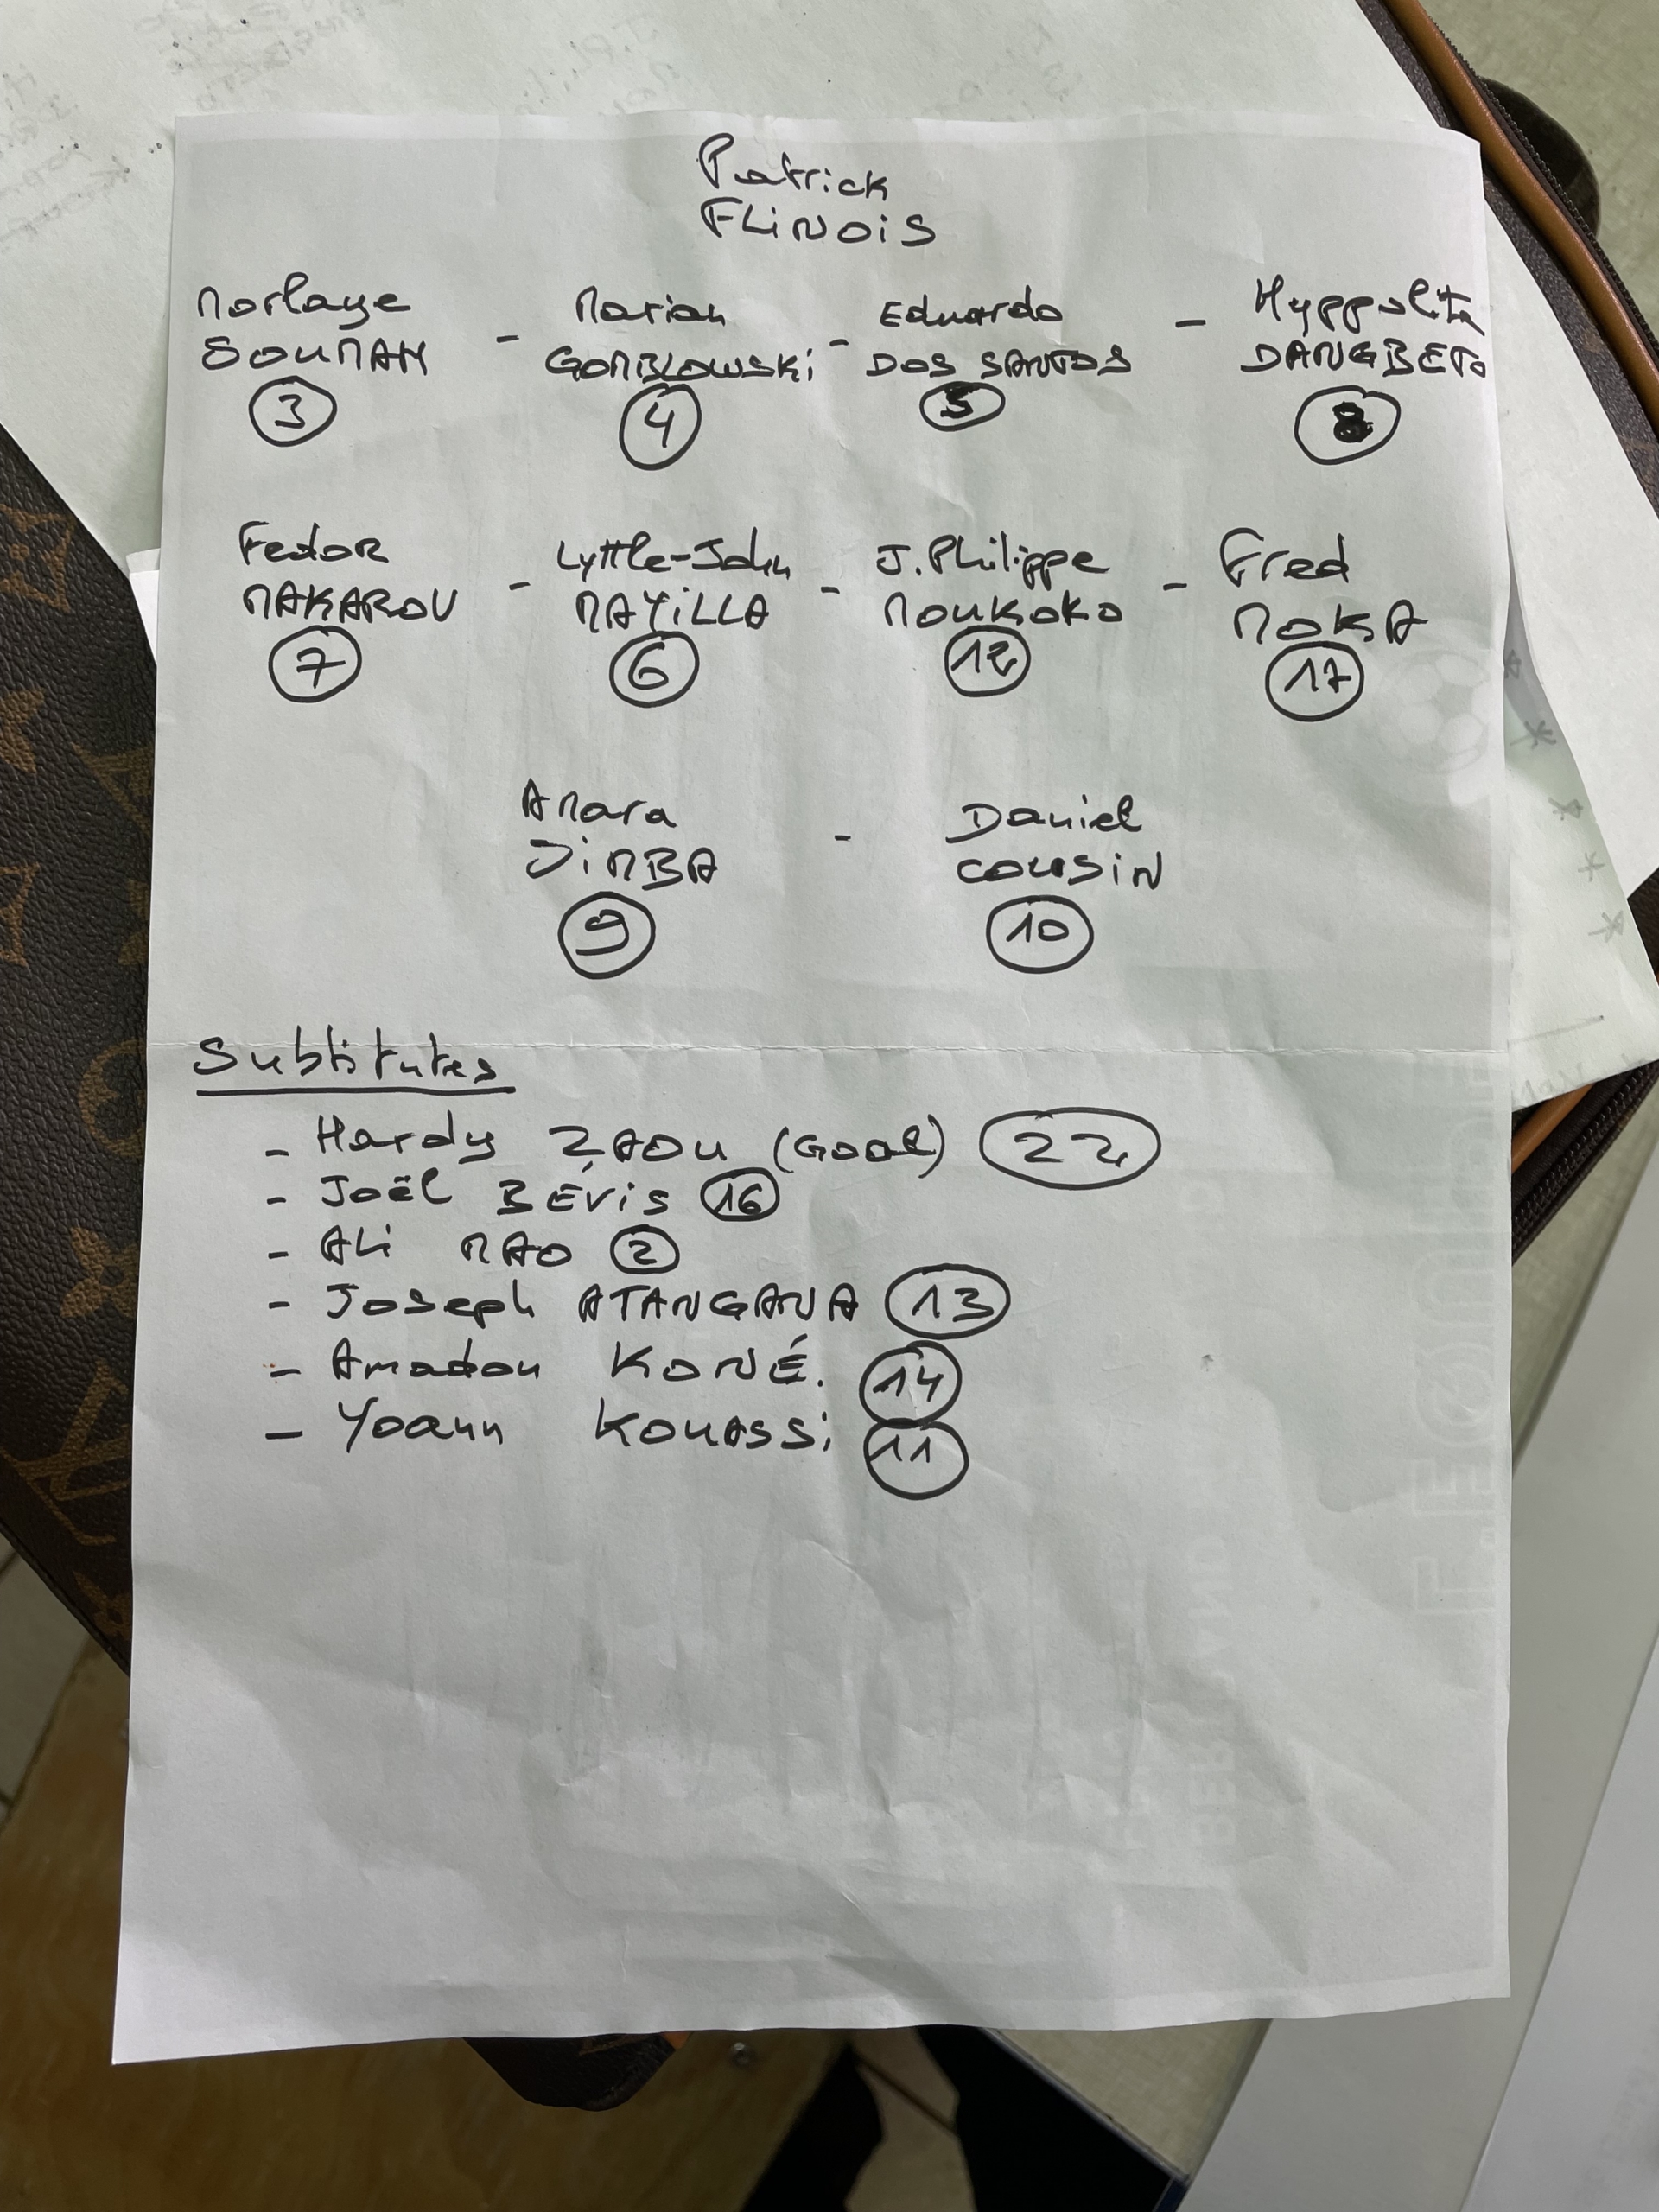 Patrick
FLINOIS
Morlaye SOUMAH - Marian GOMBLOWSKI - Eduardo DOS SANTOS - Hyppolite DANGBETO
3 4 5 8
Fedor MAKAROV - Lyttle-John MAYILLA - J.Philippe MOUKOKO - Fred MOKA
7 6 12 17
Amara JIMBA - Daniel COUSIN
9 10
Substitutes
- Hardy ZAOU (Goal) 22
- Joël BÉVIS 16
- Ali MAO 2
- Joseph ATANGANA 13
- Amadou KONÉ. 14
- Yoann KOUASSi 11